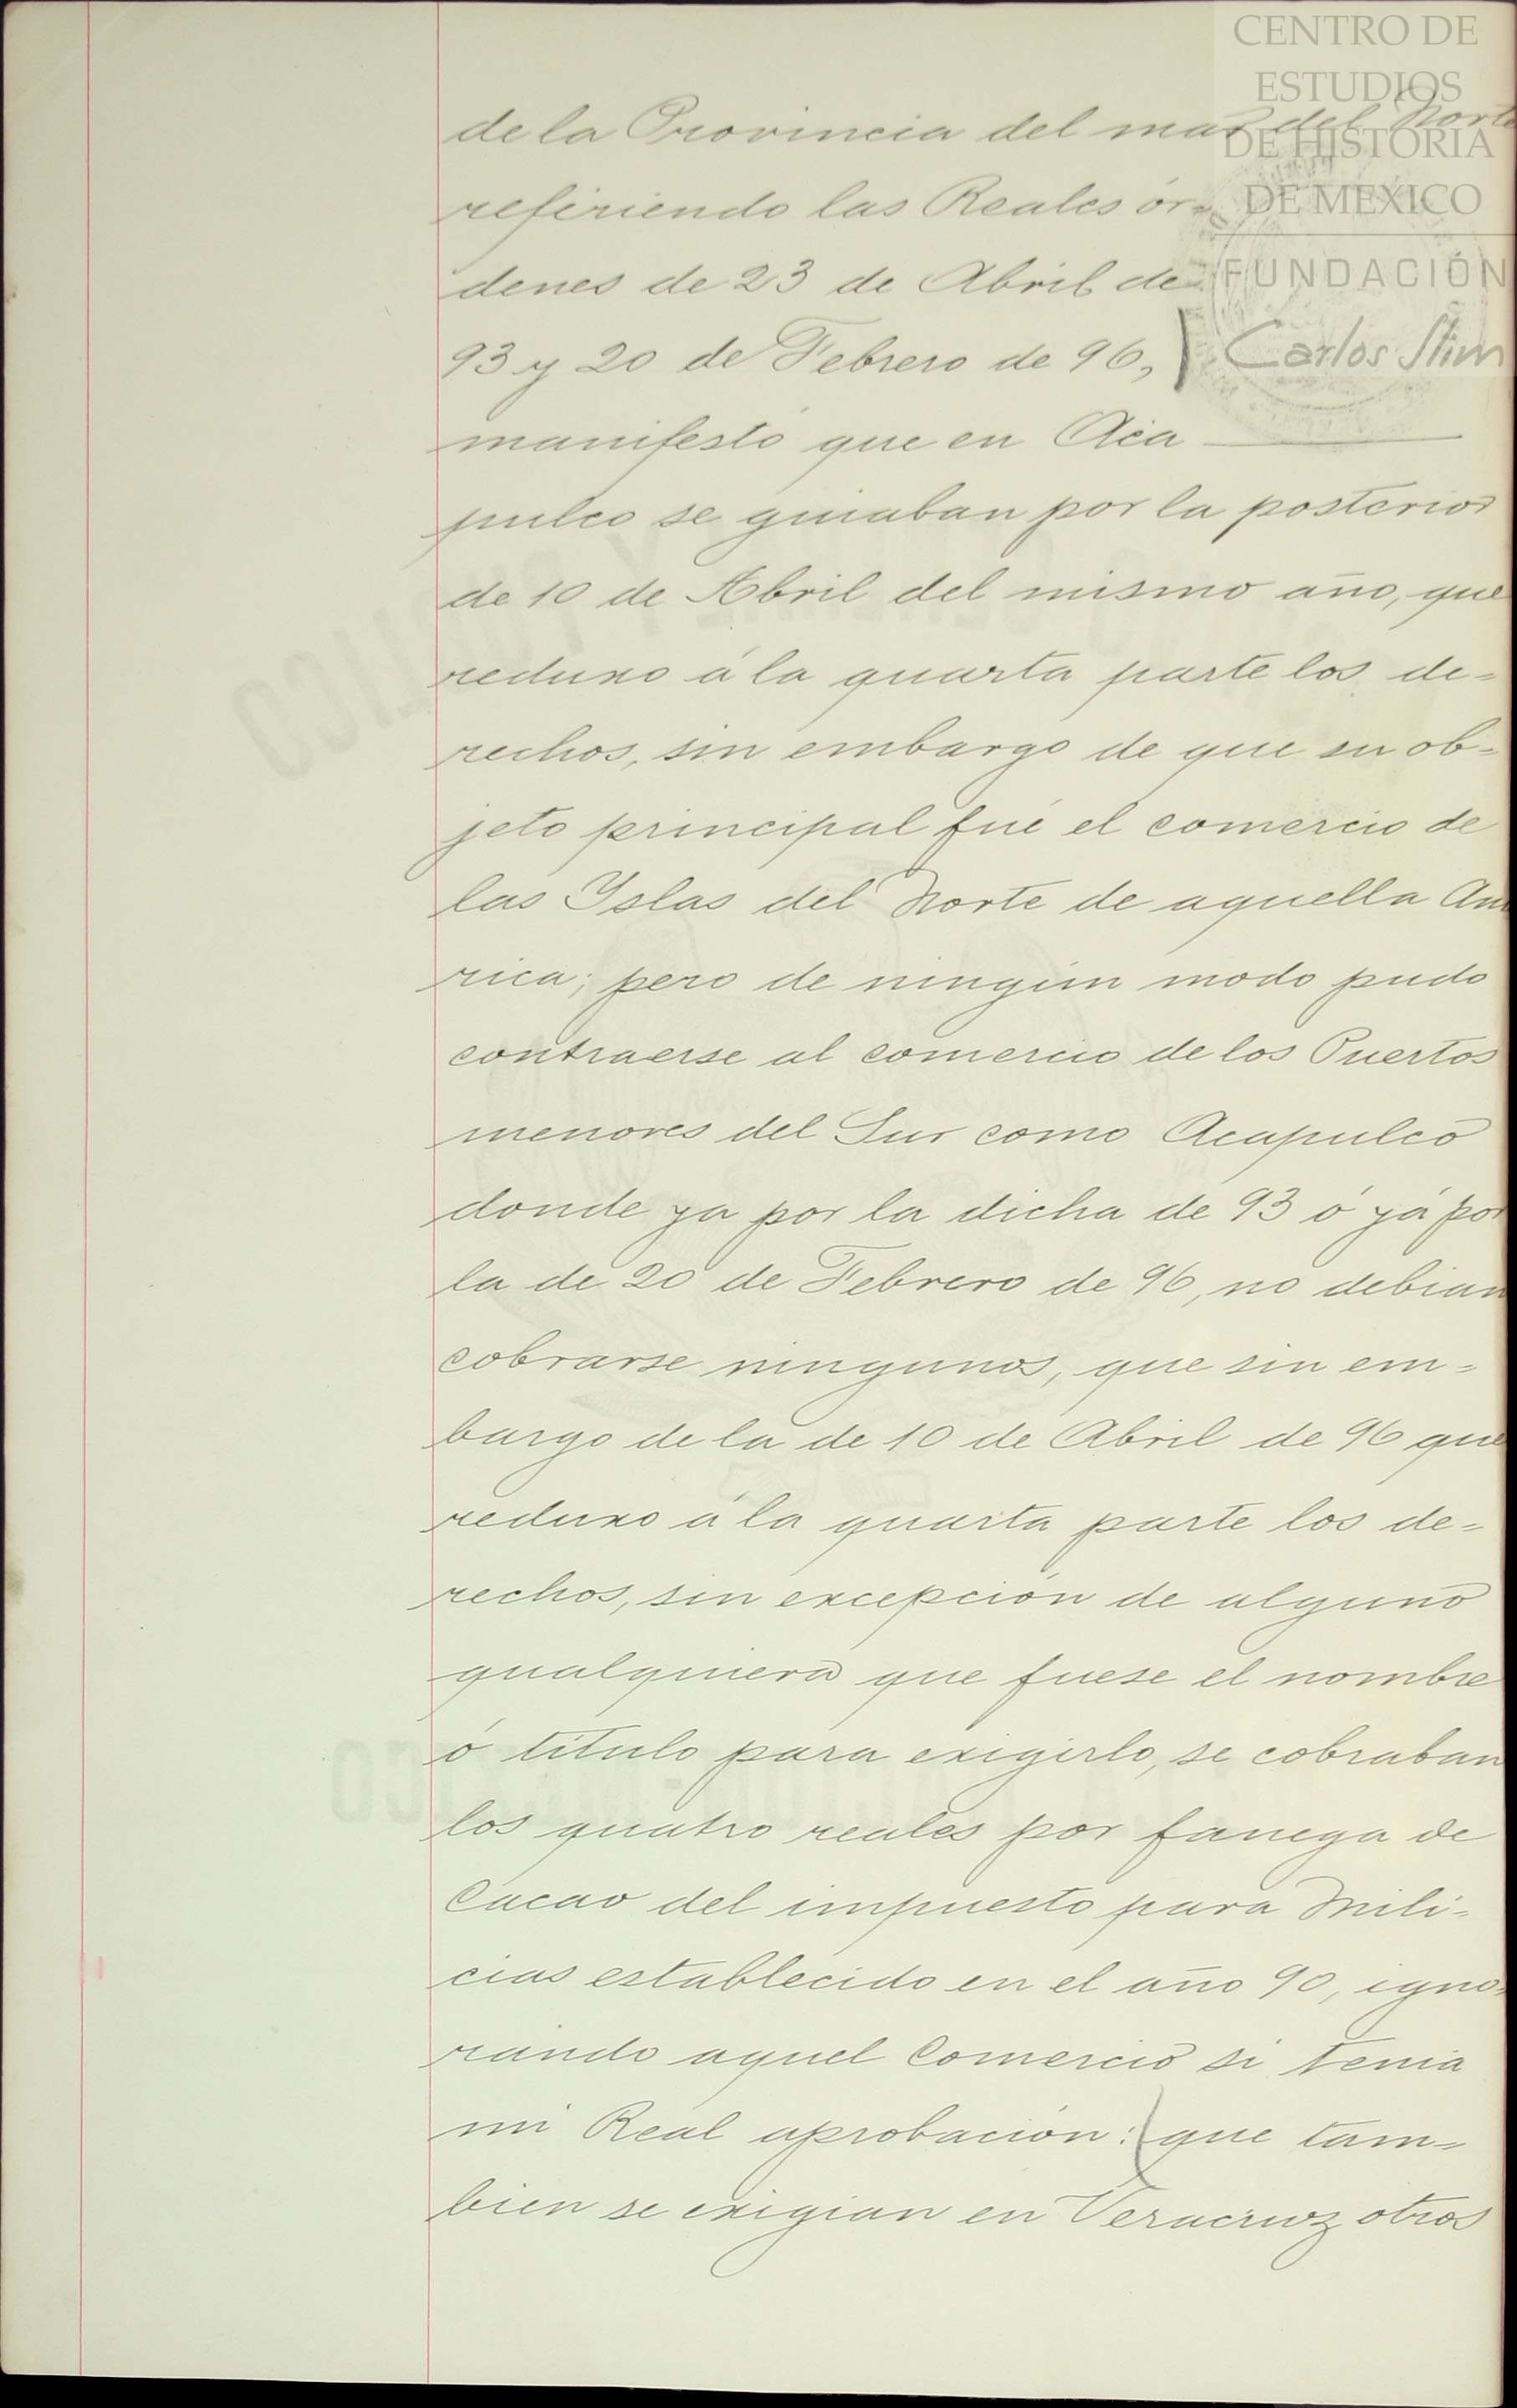 CENTRO DE
ESTUDIOS
DE HISTORIA
DE MEXICO
FUNDACIÓN
Carlos Slim
de la Provincia del mar del Norte
refiriendo las Reales or-
denes de 23 de Abril de
93 y 20 de Febrero de 96,
manifestó que en Aca
pulco se guiaban por la posterior
de 10 de Abril del mismo año, que
reduxo á la quarta parte los de=
rechos, sin embargo de que su ob=
jeto principal fué el comercio de
las Yslas del Norte de aquella Amé
rica; pero de ningún modo pudo
contraerse al comercio de los Puertos
menores del Sur como Acapulco
donde ya por la dicha de 93 ó yá por
la de 20 de Febrero de 96, no debian
cobrarse ningunos, que sin em=
bargo de la de 10 de Abril de 96 que
reduxo á la quarta parte los de=
rechos, sin excepción de alguno
qualquiera que fuese el nombre
ó título para exigirlo, se cobraban
los quatro reales por fanega de
Cacao del impuesto para Mili=
cias establecido en el año 90, igno=
rando aquel Comercio si tenia
mi Real aprobación: que tam=
bien se exigian en Veracruz otros